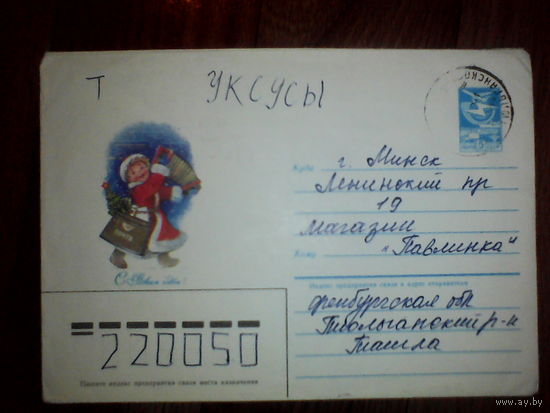 Т УКСУСЫ
Куда г. Минск
Ленинский пр
19
магазин
Кому „Павлинка“
Индекс предприятия связи и адрес отправителя
Оренбургская обл
Тюльганский р-н
Ташла
С Новым годом!
220050
Пишите индекс предприятия связи места назначения
www.ay.by